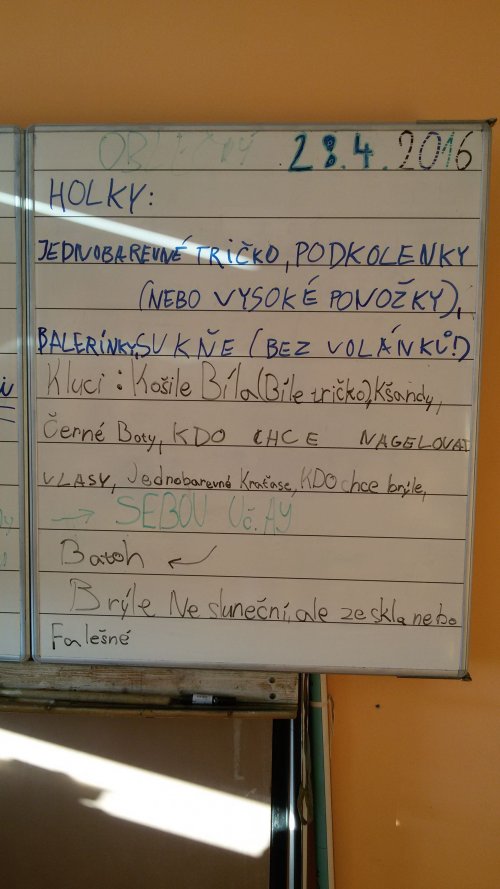 28.4.2016
HOLKY:
JEDNOBAREVNÉ TRIČKO, PODKOLENKY
(NEBO VYSOKÉ PONOŽKY),
BALERÍNKY, SUKŇE (BEZ VOLÁNKŮ!)
Kluci: Košile Bíla (Bíle tričko), Kšandy,
Černé Boty, KDO CHCE NAGELOVAT
VLASY, Jednobarevné Kraťase, KDO chce brýle,
→ SEBOU
Batoh ←
Brýle Ne sluneční, ale ze skla nebo
Falešné